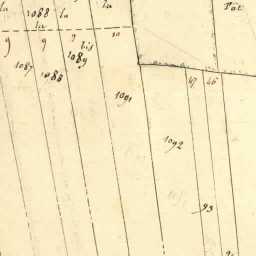 1088
la la la Pat
la
9 9 9 bis 10
1089
1087 1088 47 46
1091
1092
93